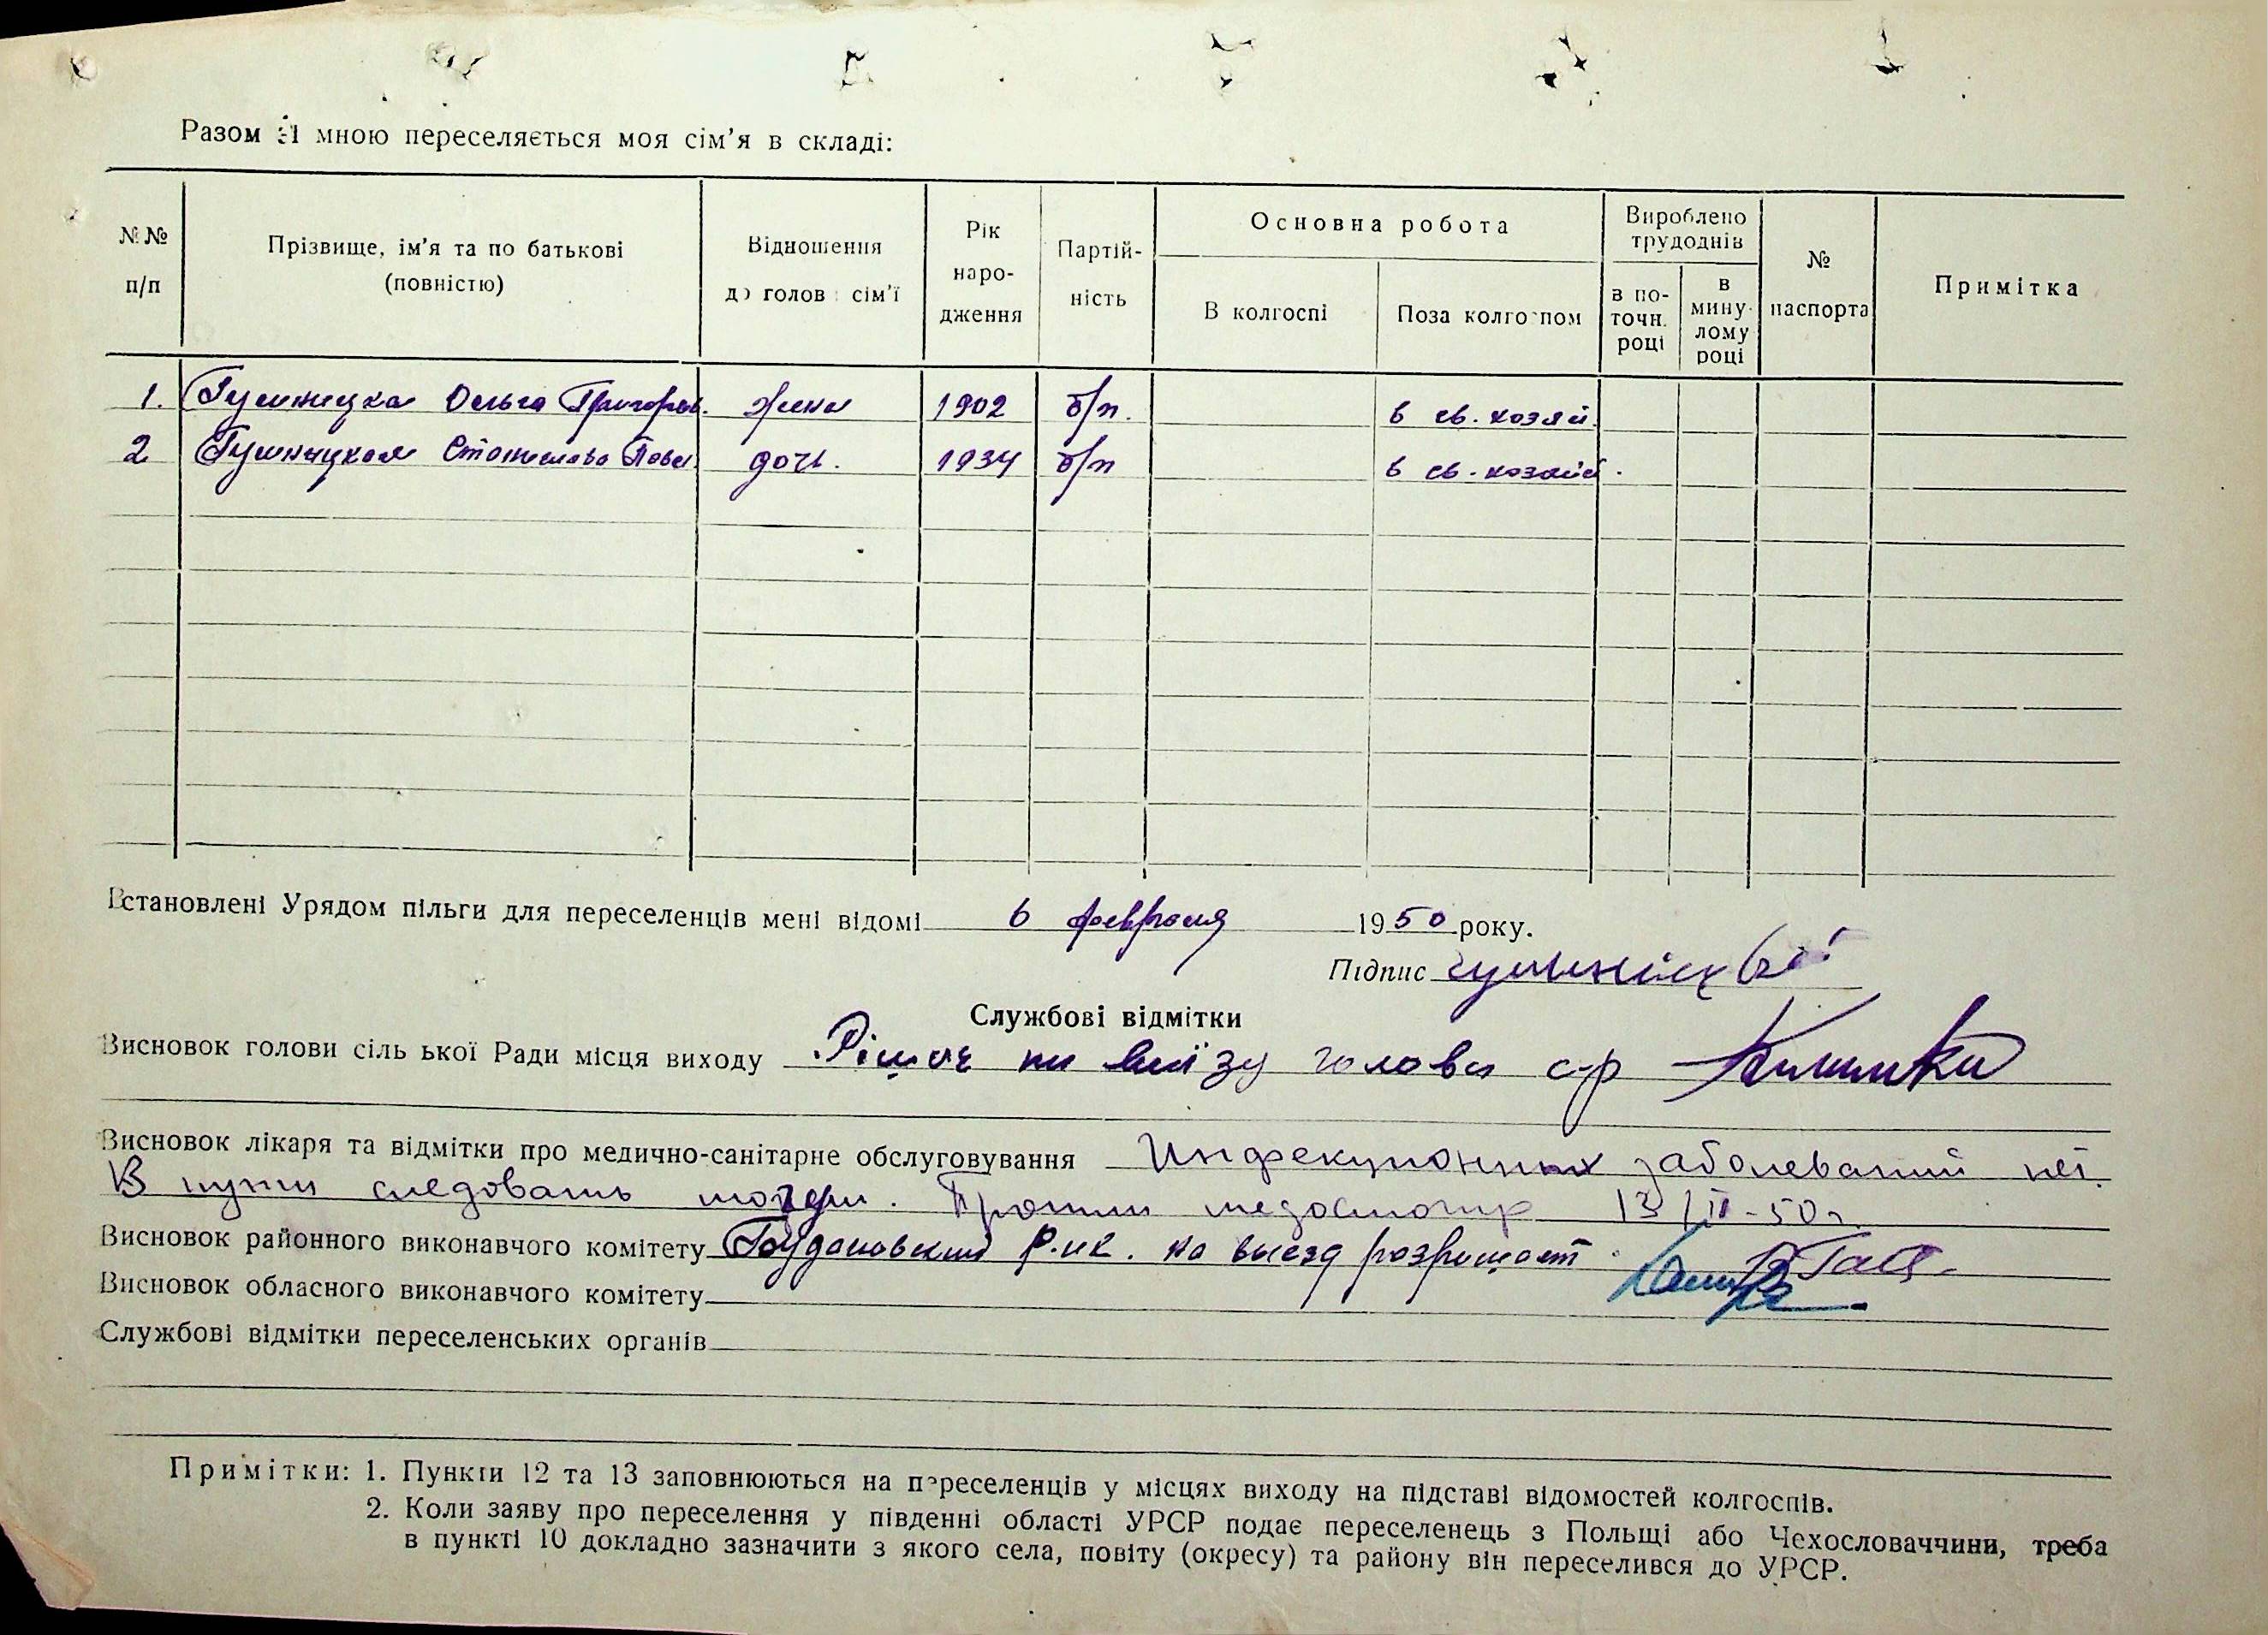 Разом зі мною переселяється моя сім'я в складі:
№№ п/п
Прізвище, ім'я та по батькові (повністю)
Відношення до голови сім'ї
Рік народження
Партійність
Основна робота
В колгоспі
Поза колгоспом
Вироблено трудоднів
в поточн. році
в минулому році
№ паспорта
Примітка
1. Ольга Григоров. жена 1902 б/п. в св. хозяй.
2 Станислава Павл дочь. 1934 б/п в св. хозяй.
Встановлені Урядом пільги для переселенців мені відомі 6 февраля 1950 року.
Підпис
Службові відмітки
Висновок голови сільської Ради місця виходу голова с/р
Висновок лікаря та відмітки про медично-санітарне обслуговування Инфекционных заболеваний нет.
В пути следовать могут. Прошли медосмотр 13/II-50г.
Висновок районного виконавчого комітету Р.И.К. на выезд разрешает
Висновок обласного виконавчого комітету
Службові відмітки переселенських органів
Примітки: 1. Пункти 12 та 13 заповнюються на переселенців у місцях виходу на підставі відомостей колгоспів.
2. Коли заяву про переселення у південні області УРСР подає переселенець з Польщі або Чехословаччини, треба
в пункті 10 докладно зазначити з якого села, повіту (окресу) та району він переселився до УРСР.